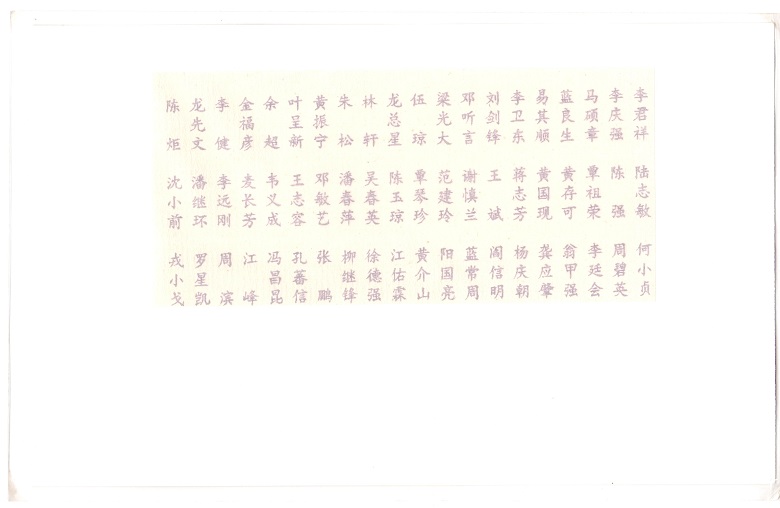 李君祥 陆志敏 何小贞
李庆强 陈强 周碧英
马硕章 覃祖荣 李廷会
蓝良生 黄存可 翁甲强
易其顺 黄国现 龚应肇
李卫东 蒋志芳 杨庆朝
刘剑锋 王斌 阎信明
邓听言 谢慎兰 蓝常周
梁光大 范建玲 阳国亮
伍琼 覃琴珍 黄介山
龙总星 陈玉琼 江佑霖
林轩 吴春英 徐德强
朱松 潘春萍 柳继锋
黄振宁 邓敏艺 张鹏
叶呈新 王志容 孔蕃信
余超 韦义成 冯昌昆
金福彦 麦长芳 江峰
李健 李远刚 周滨
龙先文 潘继环 罗星凯
陈炬 沈小前 戎小戈